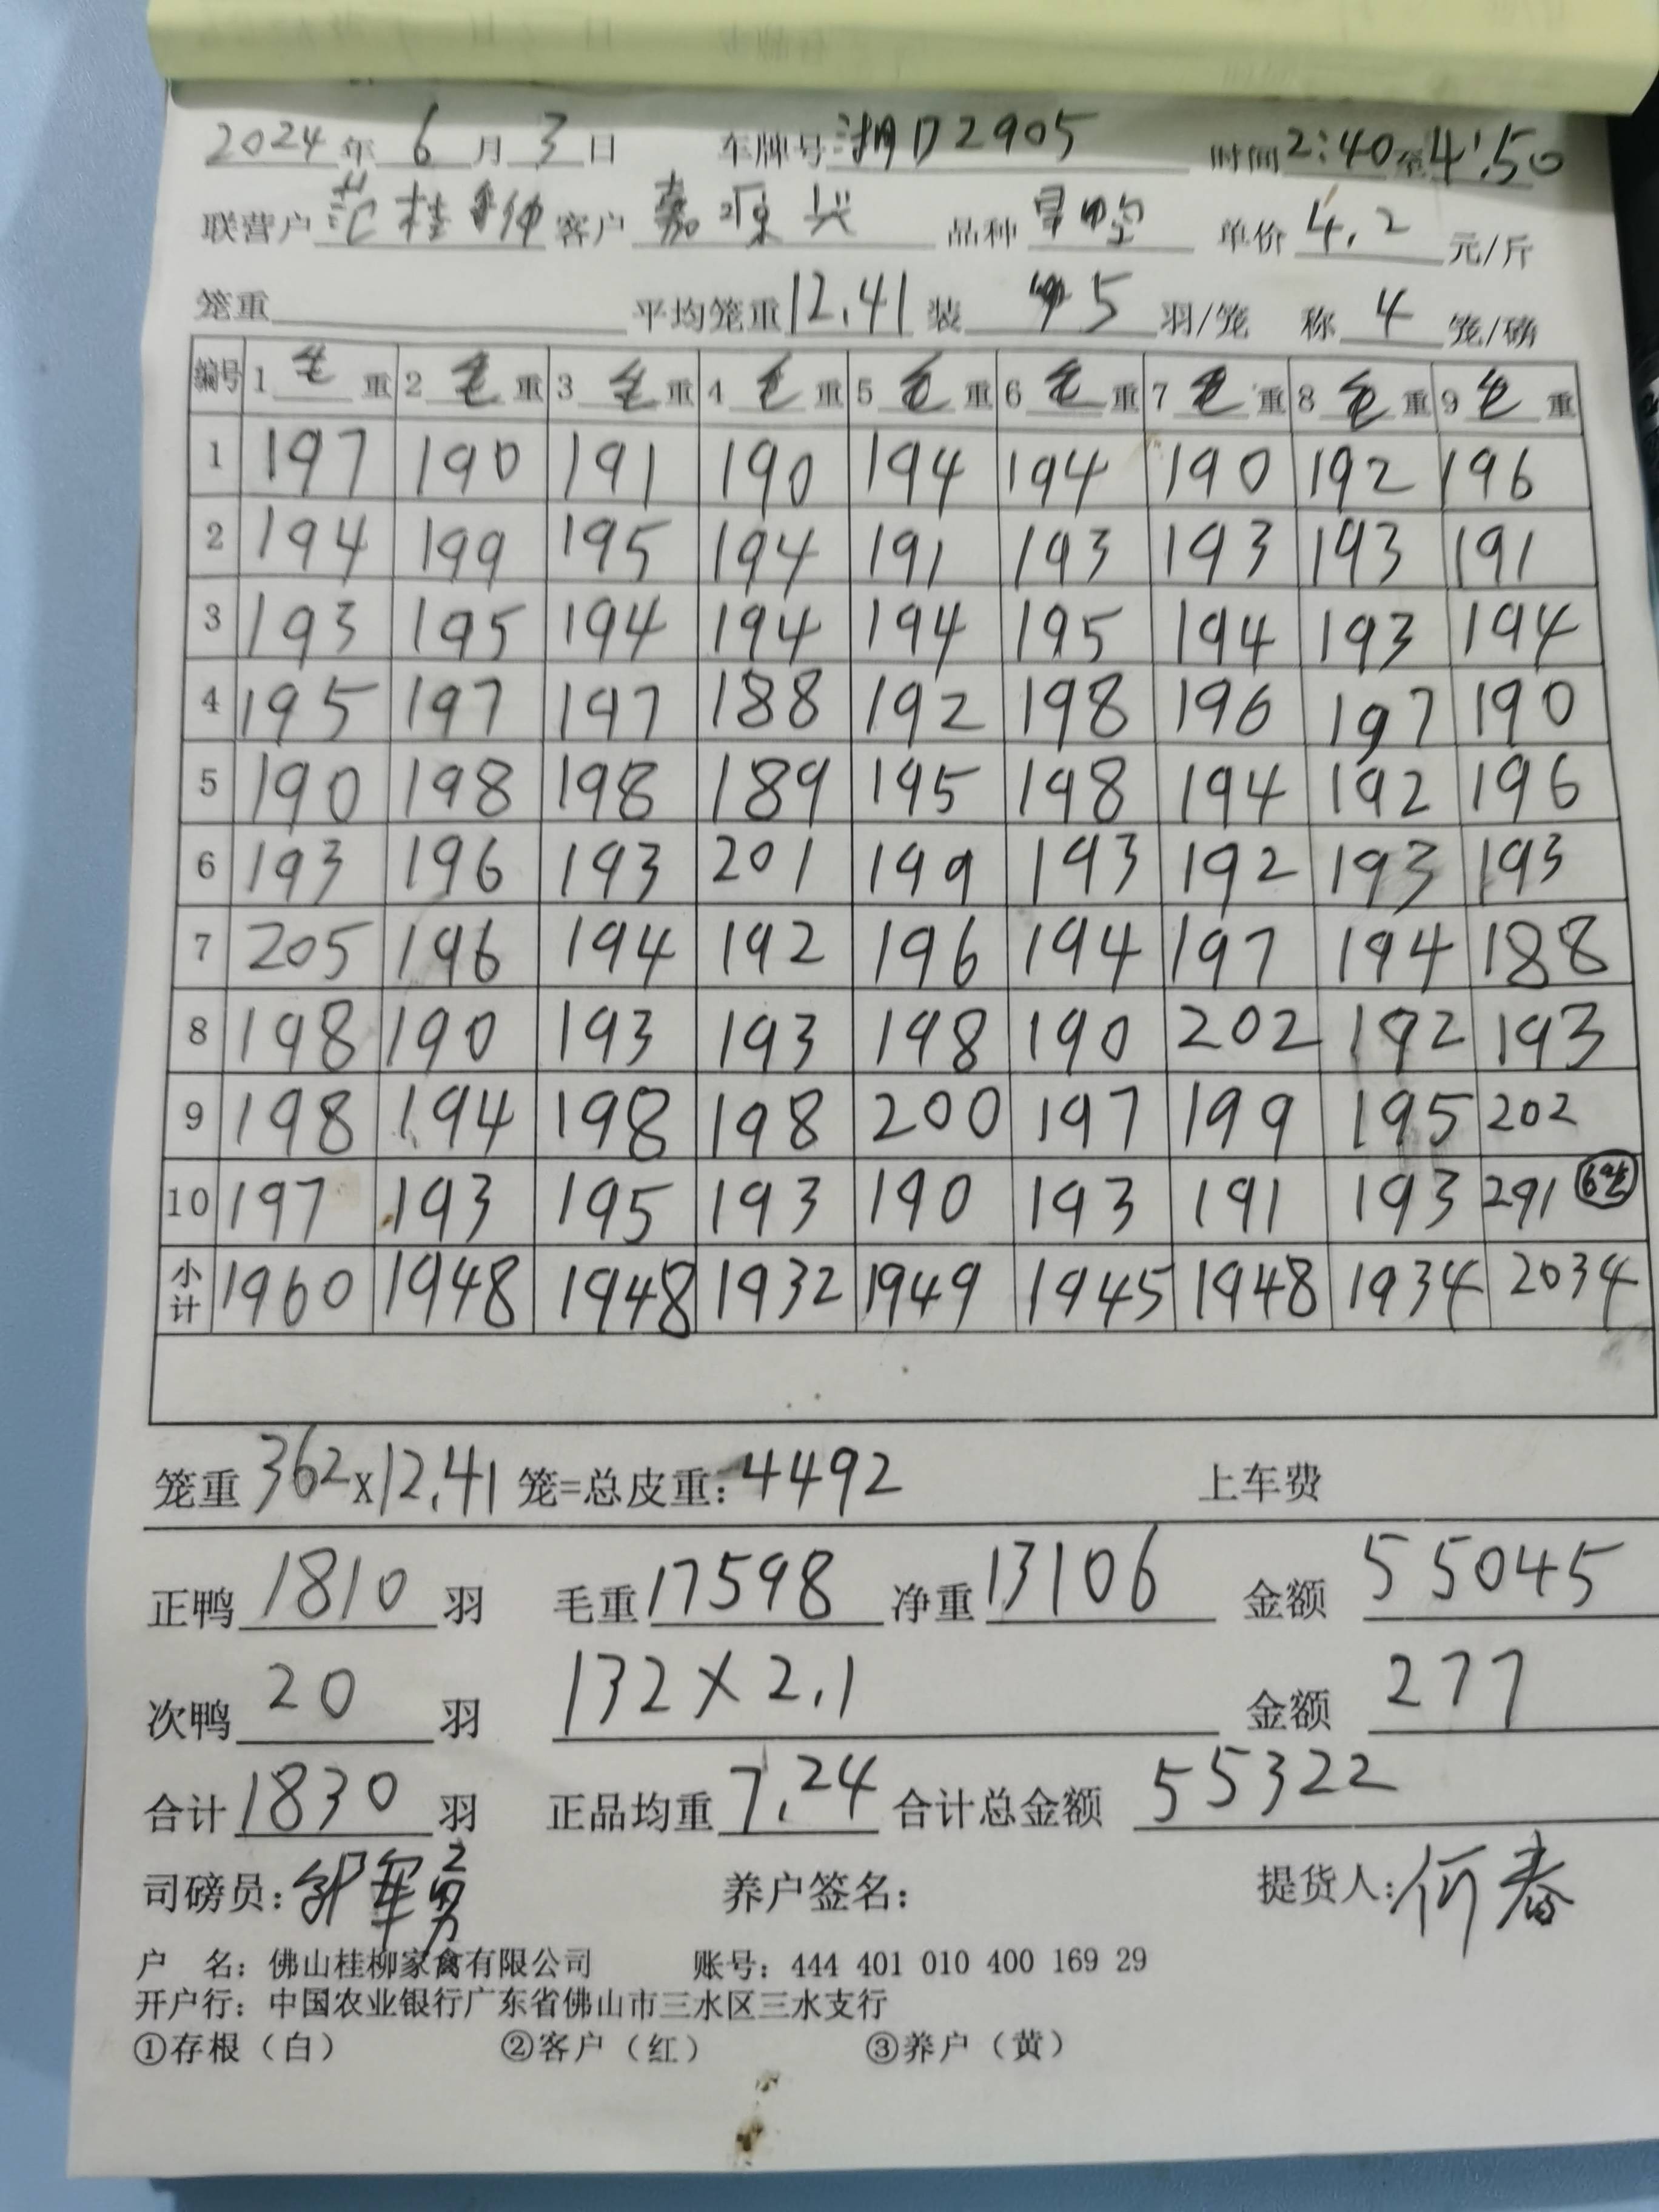 2024年 6月 3日 车牌号 湘D2905 时间 2:40至4:50
联营户 范桂 客户 嘉源兴 品种 单价 4.2 元/斤
笼重 平均笼重 12.41 装 5 羽/笼 称 4 笼/磅
编号 1 毛 重 2 毛 重 3 毛 重 4 毛 重 5 毛 重 6 毛 重 7 毛 重 8 毛 重 9 毛 重
1 197 190 191 190 194 194 190 192 196
2 194 199 195 194 191 193 193 193 191
3 193 195 194 194 194 195 194 193 194
4 195 197 197 188 192 198 196 197 190
5 190 198 198 189 195 198 194 192 196
6 193 196 193 201 199 193 192 193 193
7 205 196 194 192 196 194 197 194 188
8 198 190 193 193 198 190 202 192 193
9 198 194 198 198 200 197 199 195 202
10 197 193 195 193 190 193 191 193 291 6笼
小计 1960 1948 1948 1932 1949 1945 1948 1934 2034
笼重 362 x 12.41 笼=总皮重: 4492 上车费
正鸭 1810 羽 毛重 17598 净重 13106 金额 55045
次鸭 20 羽 132 × 2.1 金额 277
合计 1830 羽 正品均重 7.24 合计总金额 55322
司磅员: 军勇 养户签名: 提货人: 何春
户 名: 佛山桂柳家禽有限公司 账号: 444 401 010 400 169 29
开户行: 中国农业银行广东省佛山市三水区三水支行
①存根（白） ②客户（红） ③养户（黄）